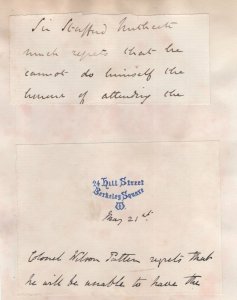 Sir Stafford Northcote
much regrets that he
cannot do himself the
honour of attending the
24 Hill Street
Berkeley Square
W.
May 21st.
Colonel Wilson Patten regrets that
he will be unable to have the